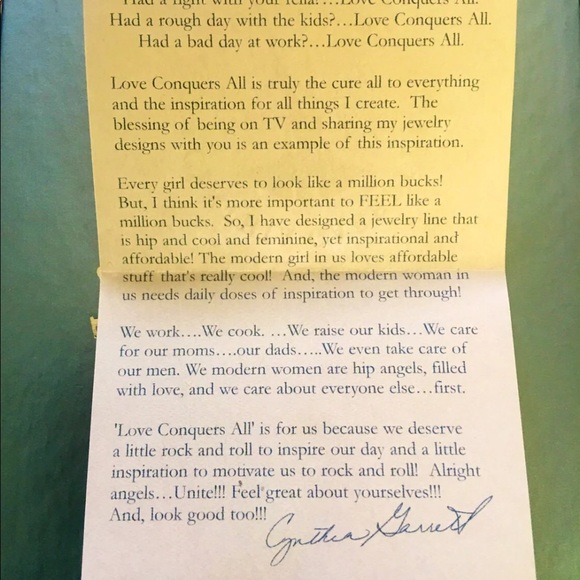 Had a fight with your fella?…Love Conquers All.
Had a rough day with the kids?…Love Conquers All.
Had a bad day at work?…Love Conquers All.
Love Conquers All is truly the cure all to everything
and the inspiration for all things I create. The
blessing of being on TV and sharing my jewelry
designs with you is an example of this inspiration.
Every girl deserves to look like a million bucks!
But, I think it's more important to FEEL like a
million bucks. So, I have designed a jewelry line that
is hip and cool and feminine, yet inspirational and
affordable! The modern girl in us loves affordable
stuff that's really cool! And, the modern woman in
us needs daily doses of inspiration to get through!
We work….We cook. …We raise our kids…We care
for our moms….our dads…..We even take care of
our men. We modern women are hip angels, filled
with love, and we care about everyone else…first.
'Love Conquers All' is for us because we deserve
a little rock and roll to inspire our day and a little
inspiration to motivate us to rock and roll! Alright
angels…Unite!!! Feel great about yourselves!!!
And, look good too!!!
Cynthia Garrett